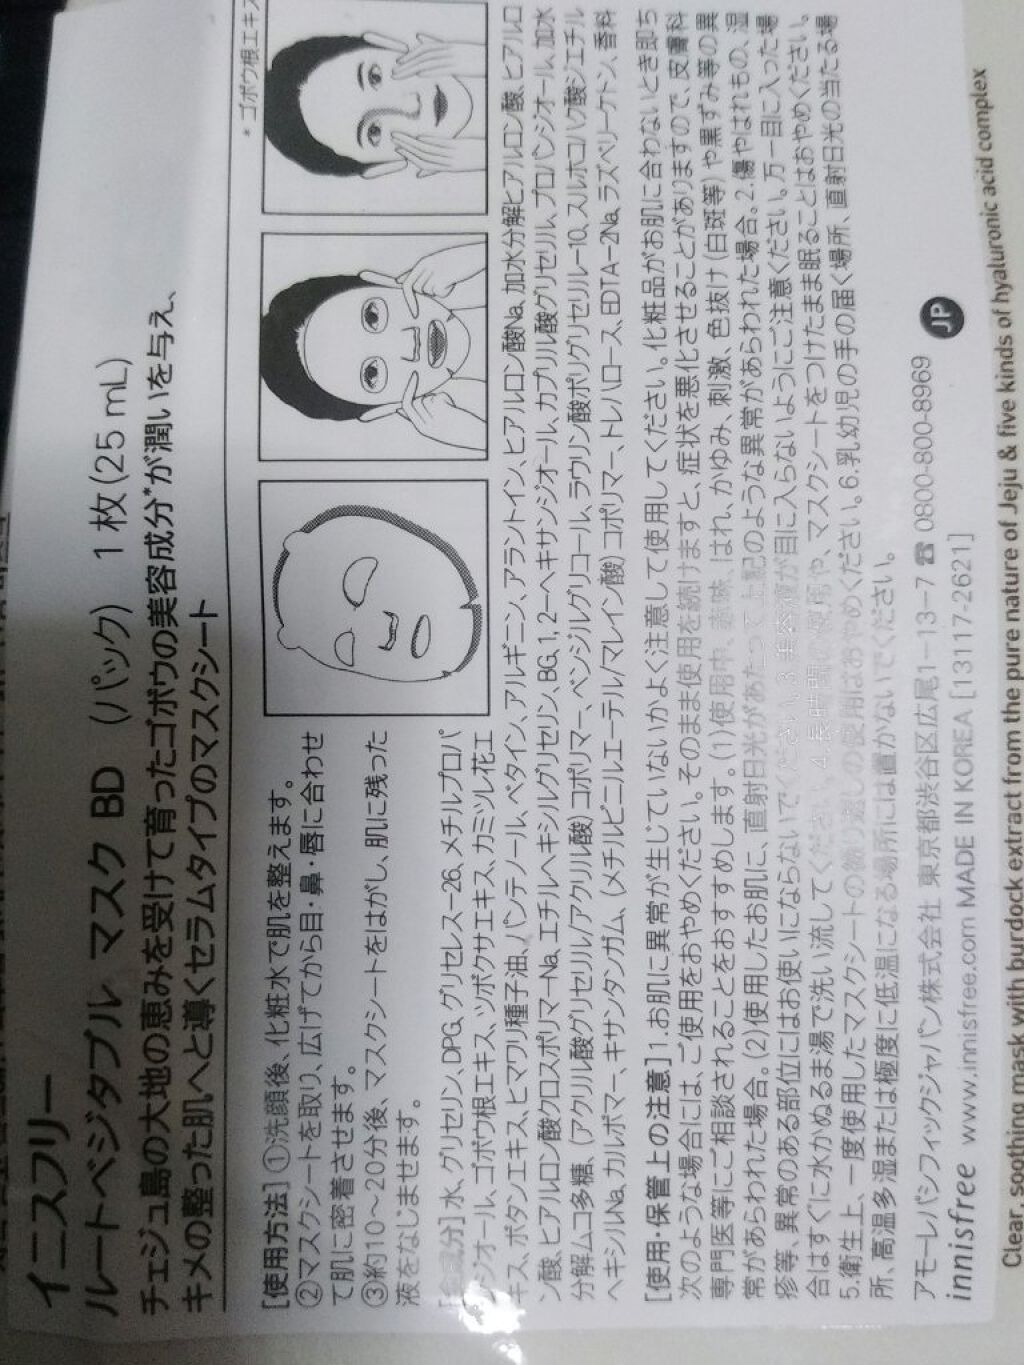 イニスフリー
ルートベジタブル マスク BD (パック) 1枚(25 mL)
チェジュ島の大地の恵みを受けて育ったゴボウの美容成分*が潤いを与え、
キメの整った肌へと導くセラムタイプのマスクシート
* ゴボウ根エキス
[使用方法] ①洗顔後、化粧水で肌を整えます。
②マスクシートを取り、広げてから目・鼻・唇に合わせ
て肌に密着させます。
③約10〜20分後、マスクシートをはがし、肌に残った
液をなじませます。
[全成分] 水、グリセリン、DPG、グリセレス-26、メチルプロパ
ンジオール、ゴボウ根エキス、ツボクサエキス、カミツレ花エ
キス、ボタンエキス、ヒマワリ種子油、パンテノール、ベタイン、アルギニン、アラントイン、ヒアルロン酸Na、加水分解ヒアルロン酸、ヒアルロ
ン酸、ヒアルロン酸クロスポリマーNa、エチルヘキシルグリセリン、BG、1,2-ヘキサンジオール、カプリル酸グリセリル、プロパンジオール、加水
分解ムコ多糖、(アクリル酸グリセリル/アクリル酸)コポリマー、ペンチレングリコール、ラウリン酸ポリグリセリル-10、スルホコハク酸ジエチル
ヘキシルNa、カルボマー、キサンタンガム、(メチルビニルエーテル/マレイン酸)コポリマー、トレハロース、EDTA-2Na、ラズベリーケトン、香料
[使用・保管上の注意] 1.お肌に異常が生じていないかよく注意して使用してください。化粧品がお肌に合わないとき即ち
次のような場合には、ご使用をおやめください。そのまま使用を続けますと、症状を悪化させることがありますので、皮膚科
専門医等にご相談されることをおすすめします。(1)使用中、赤味、はれ、かゆみ、刺激、色抜け(白斑等)や黒ずみ等の異
常があらわれた場合。(2)使用したお肌に、直射日光があたって上記のような異常があらわれた場合。2.傷やはれもの、湿
疹等、異常のある部位にはお使いにならないでください。3.美容液が目に入らないようにご注意ください。万一目に入った場
合はすぐに水かぬるま湯で洗い流してください。4.長時間の使用や、マスクシートをつけたまま眠ることはおやめください。
5.衛生上、一度使用したマスクシートの繰り返しの使用はおやめください。6.乳幼児の手の届く場所、直射日光の当たる場
所、高温多湿または極度に低温になる場所には置かないでください。
アモーレパシフィックジャパン株式会社 東京都渋谷区広尾1-13-7 ☎ 0800-800-8969
innisfree www.innisfree.com MADE IN KOREA [13117-2621] JP
Clear, soothing mask with burdock extract from the pure nature of Jeju & five kinds of hyaluronic acid complex